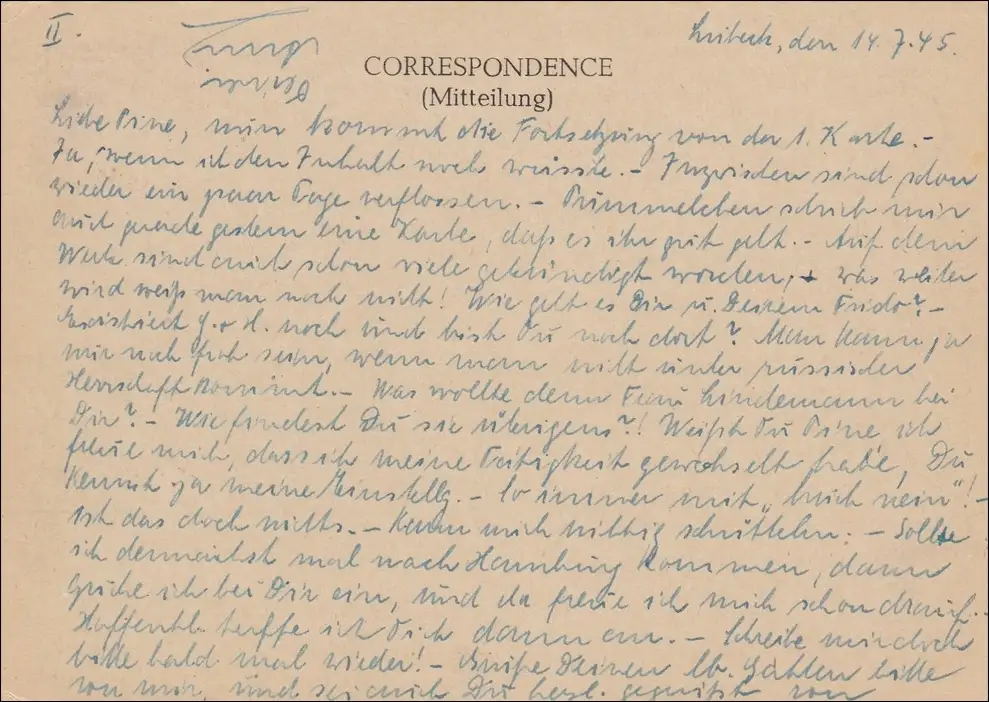 II.
Lübeck, den 14.7.45.
CORRESPONDENCE
(Mitteilung)
Liebe Pine, nun kommt die Fortsetzung von der 1. Karte. -
Ja, wenn ich den Inhalt noch wüsste. - Inzwischen sind schon
wieder ein paar Tage verflossen. - Pummelchen schrieb mir
auch gerade gestern eine Karte, daß es ihr gut geht. - Auf dem
Werk sind auch schon viele gekündigt worden, was weiter
wird weiß man noch nicht! Wie geht es Dir u. Deinem Frido? -
Existiert noch und bist Du noch dort? Man kann ja
nur noch froh sein, wenn man nicht unter russischer
Herrschaft kommt. - Was wollte denn Frau Lindemann bei
Dir? - Wie findest Du sie übrigens?! Weißt Du Pine, ich
freue mich, dass ich meine Tätigkeit gewechselt habe, Du
kennst ja meine Einstellg. - So immer mit „ nein"! -
ist das doch nichts. - Kann mich schütteln. - Sollte
ich demnächst mal nach Hamburg kommen, dann
gucke ich bei Dir ein, und da freue ich mich schon drauf. -
Hoffentl. treffe ich Dich dann an. - Schreibe mir doch
bitte bald mal wieder! - Grüße Deinen lb. Gatten bitte
von mir, und sei auch Du herzl. gegrüßt von